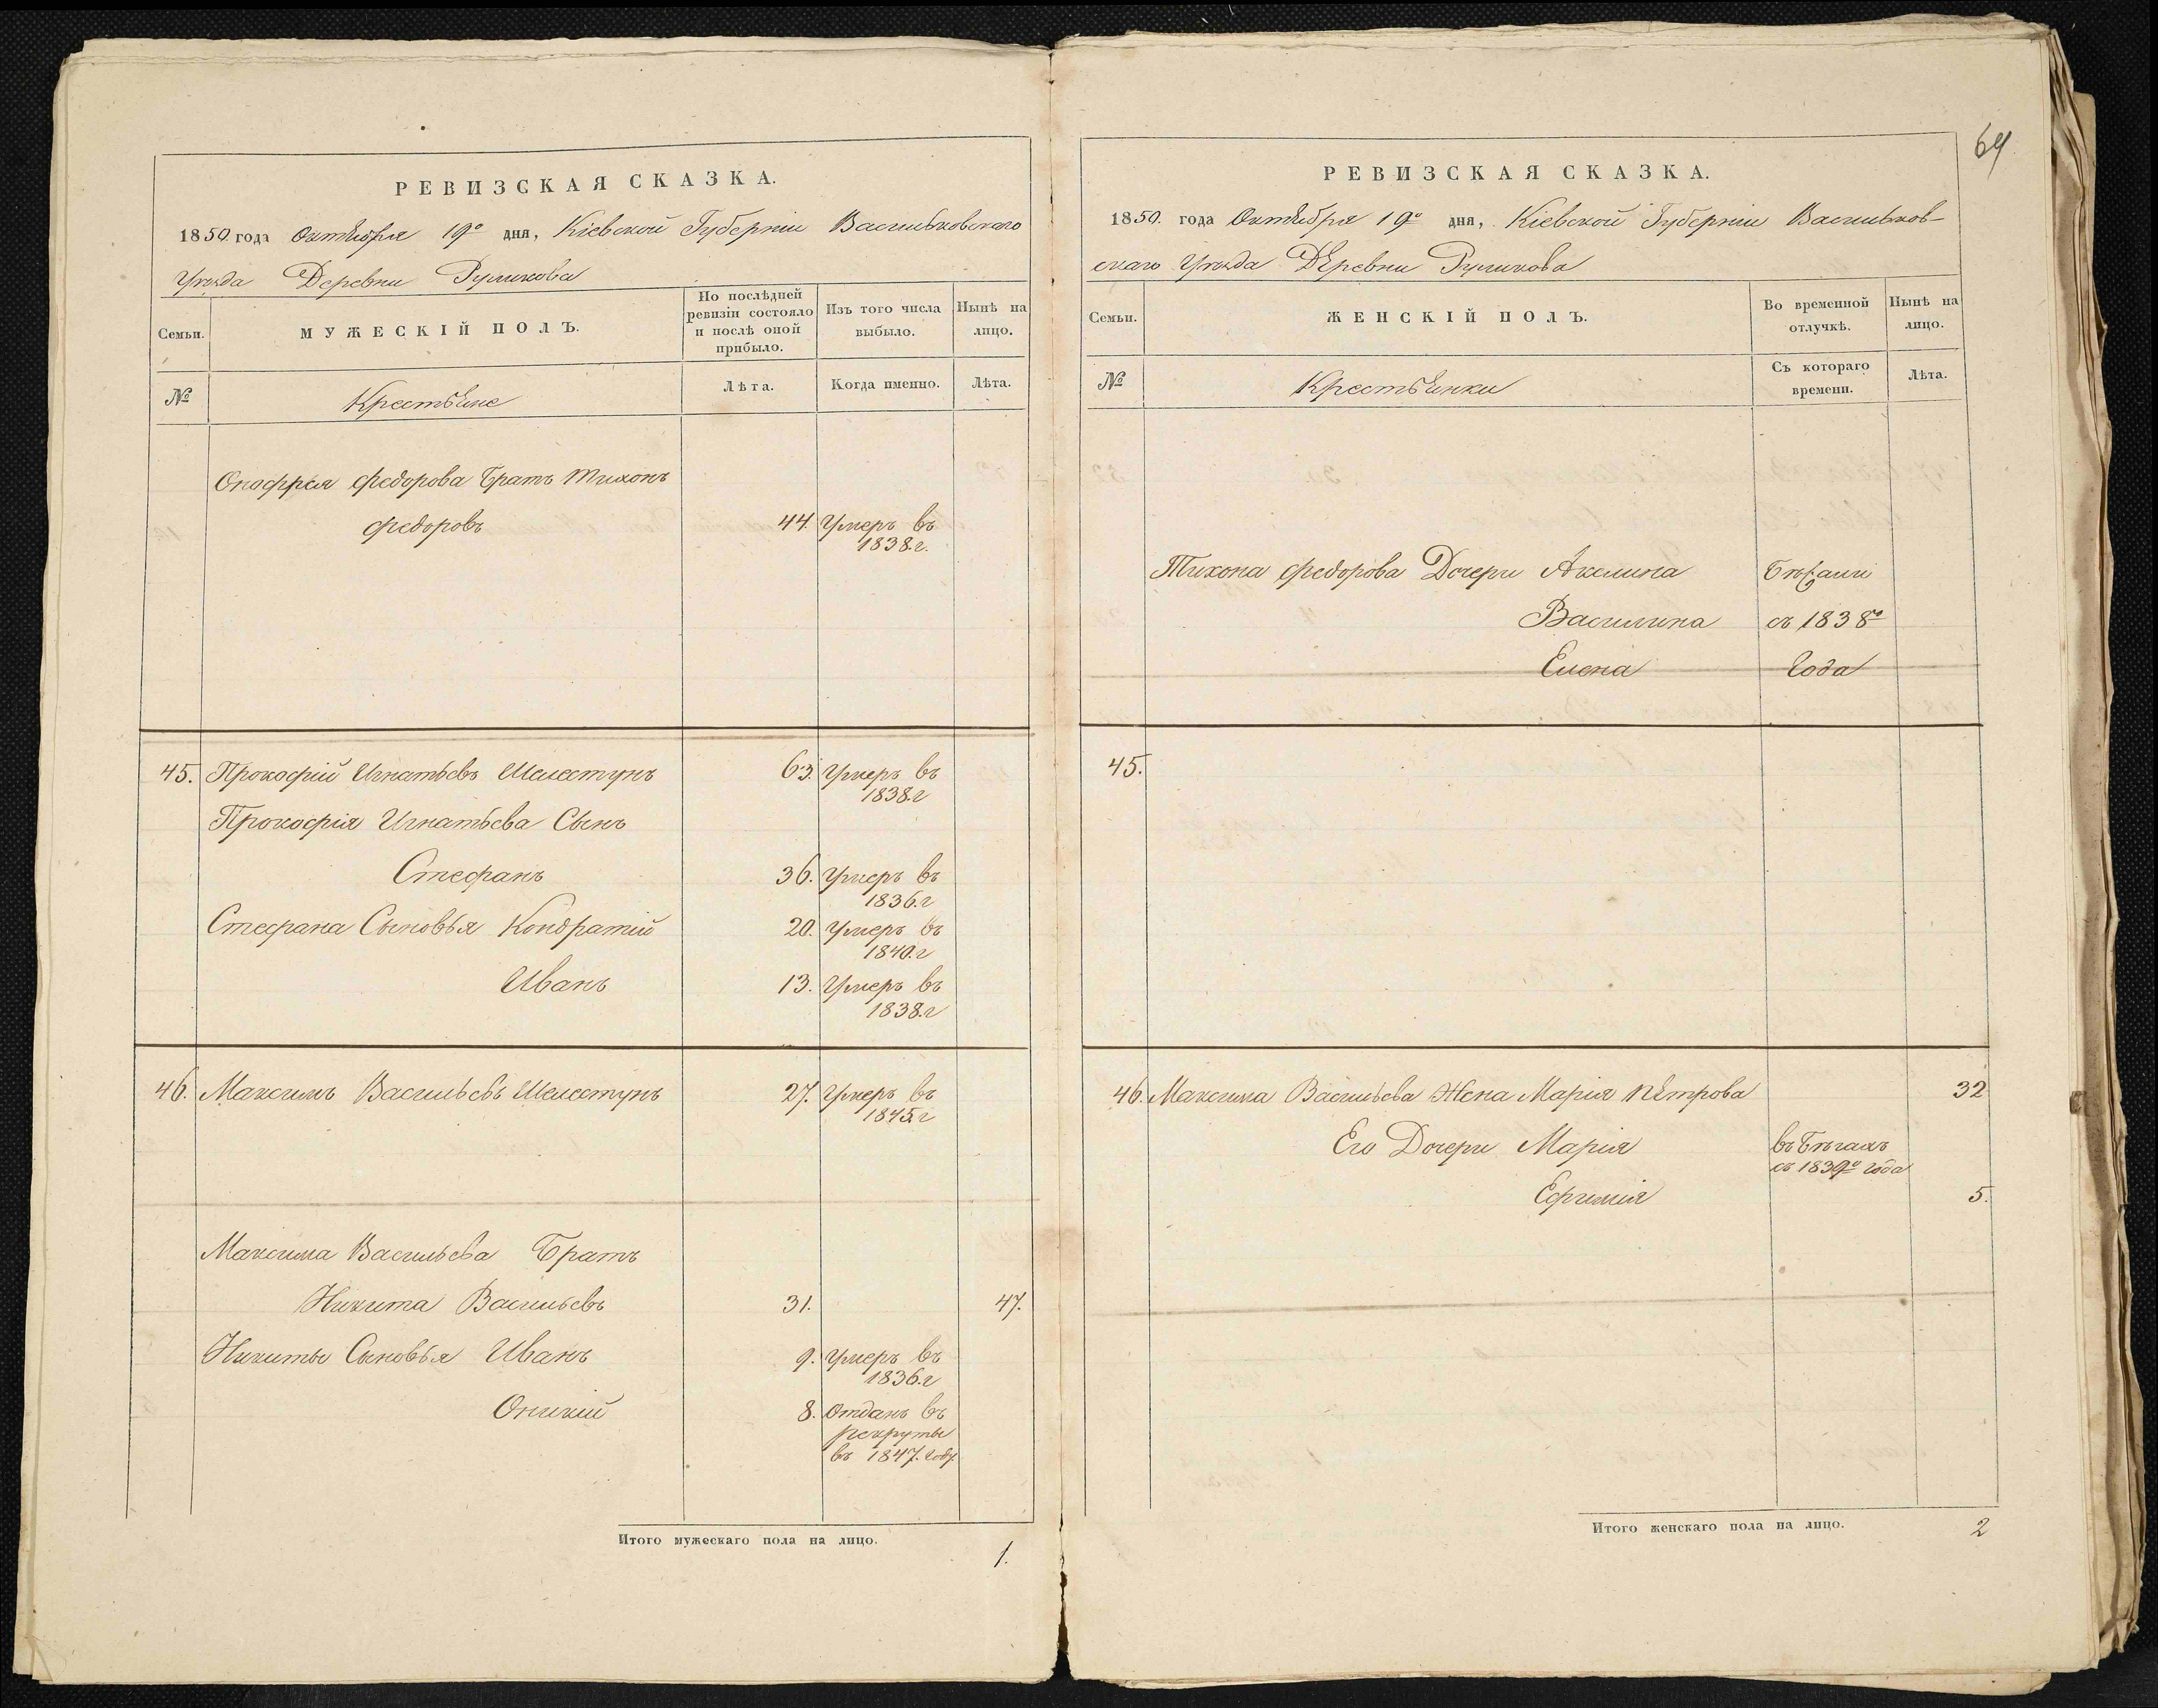 РЕВИЗСКАЯ СКАЗКА.
1850 года Октября 19º дня, Кіевской Губерніи Васильковскаго
Уѣзда Деревни Руликова
Семьи.
МУЖЕСКІЙ ПОЛЪ.
По послѣдней ревизіи состояло и послѣ оной прибыло.
Изъ того числа выбыло.
Нынѣ на лицо.
№
Крестьяне
Лѣта.
Когда именно.
Лѣта.
Онофрея Федорова Братъ Тихонъ
Федоровъ 44. Умеръ въ
1838.г.
45. Прокофій Игнатьевъ Шелестунъ 63. Умеръ въ
1838.г
Прокофія Игнатьева Сынъ
Стефанъ 36. Умеръ въ
1836.г
Стефана Сыновья Кондратій 20. Умеръ въ
1840.г
Иванъ 13. Умеръ въ
1838.г
46. Максимъ Васильевъ Шелестунъ 27. Умеръ въ
1845.г
Максима Васильева Братъ
Никита Васильевъ 31. 47.
Никиты Сыновья Иванъ 9. Умеръ въ
1836.г
Оникій 8. Отданъ въ
рекруты
въ 1847. году.
Итого мужескаго пола на лицо.
1.
64
РЕВИЗСКАЯ СКАЗКА.
1850. года Октября 19º дня, Кіевской Губерніи Васильков-
скаго Уѣзда Деревни Руликова
Семьи.
ЖЕНСКІЙ ПОЛЪ.
Во временной отлучкѣ.
Нынѣ на лицо.
№
Крестьянки
Съ котораго времени.
Лѣта.
Тихона Федорова Дочери Акелина Бѣжали
Василина съ 1838го
Елена Года
45.
46. Максима Васильева Жена Марія Петрова 32
Его Дочери Марія въ Бѣгахъ
съ 1839º года
Ефимія 5.
Итого женскаго пола на лицо. 2